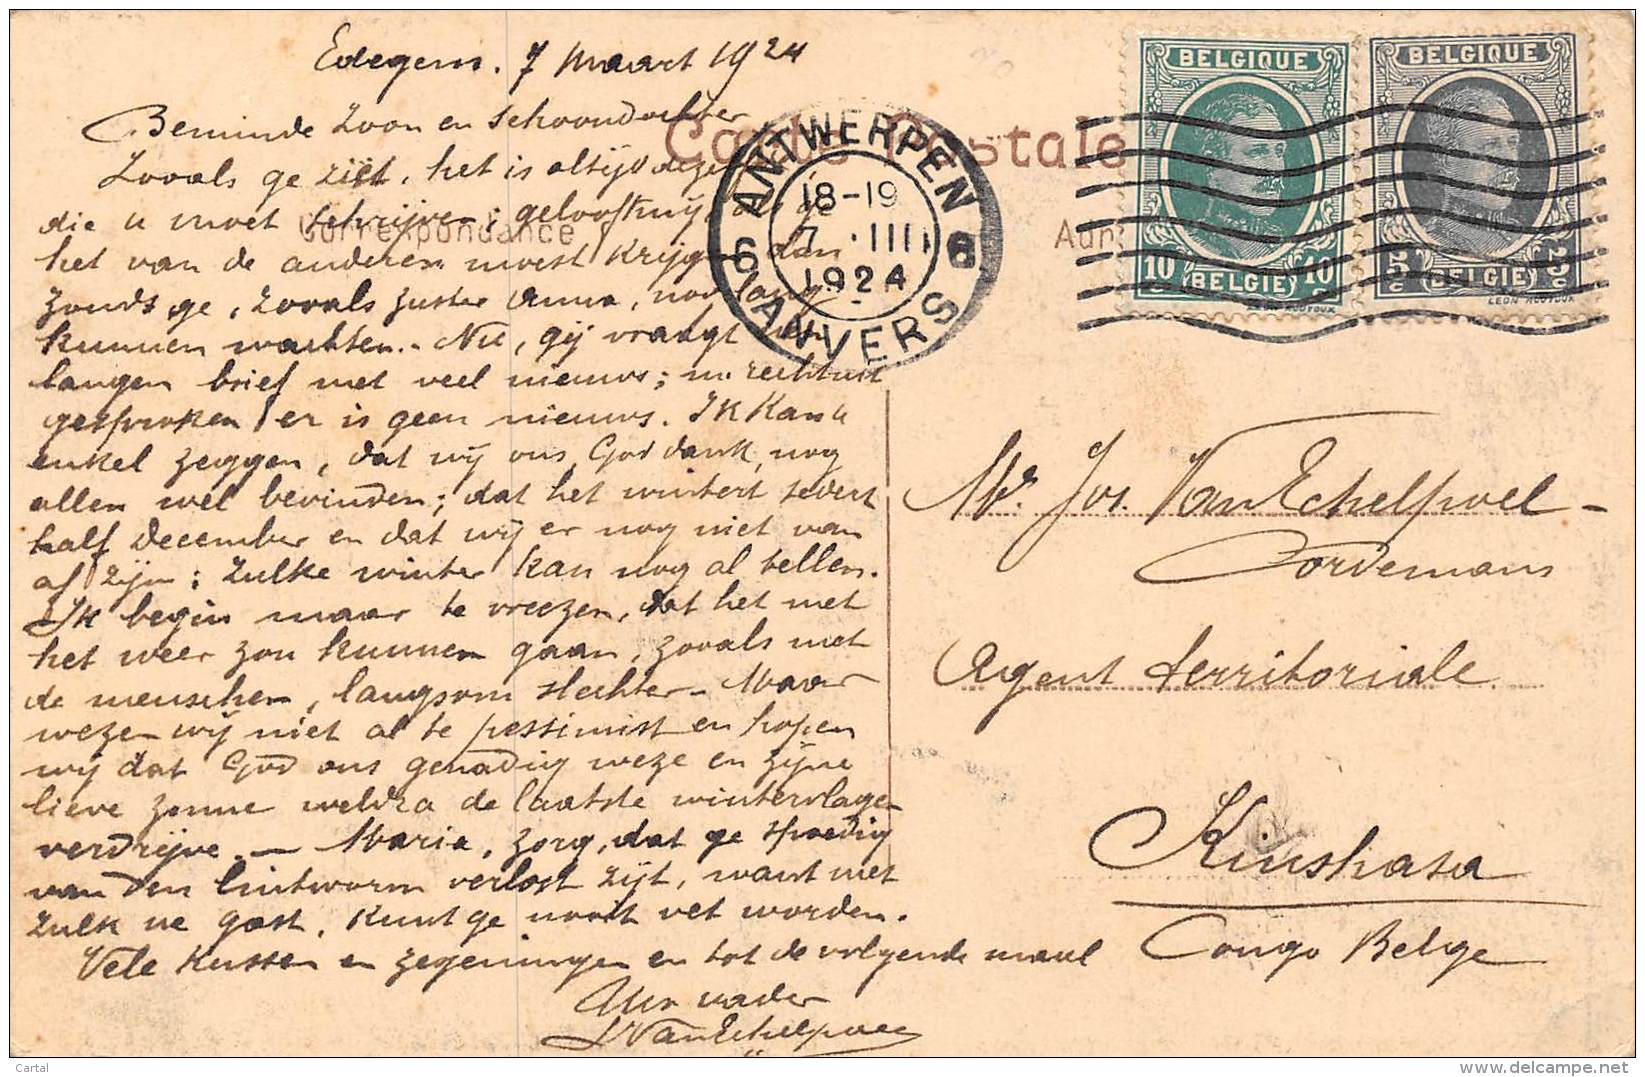 Edegem. 7 maart 1924
Beminde Zoon en Schoondochter
Zooals ge ziet, het is altijd dezelfde
die u moet schrijven; geloof mij, als ge
het van de anderen moest krijgen dan
zoudt ge, zooals zuster Anna, nog lang
kunnen wachten. - Nu, gij vraagt een
langen brief met veel nieuws; rechtuit
gesproken er is geen nieuws. Ik kan u
enkel zeggen, dat wij ons, God dank, nog
allen wel bevinden; dat het wintert sedert
half December en dat wij er nog niet van
af zijn; zulke winter kan nog al tellen.
Ik begin maar te vreezen, dat het met
het weer zou kunnen gaan, zooals met
de menschen, langsom slechter - Maar
wezen wij niet al te pessimist en hopen
wij dat God ons genadig weze en zijne
lieve zonne weldra de laatste wintervlagen
verdrijve. - Maria, zorg, dat ge spoedig
van den lintworm verlost zijt, want met
zulk ne gast, kunt ge nooit vet worden.
Vele kussen en zegeningen en tot de volgende maal
Uw vader
J VanEchelpoel
Carte Postale
Correspondance
ANTWERPEN
6 6
18-19
7 . III
1924
ANVERS
BELGIQUE
10c 10c
BELGIE
BELGIQUE
5c 5c
BELGIE
LEON HOUYOUX
Mr. Jos. Van Echelpoel -
Oordemans
Agent territoriale
Kinshasa
Congo Belge
Cartal
www.delcampe.net